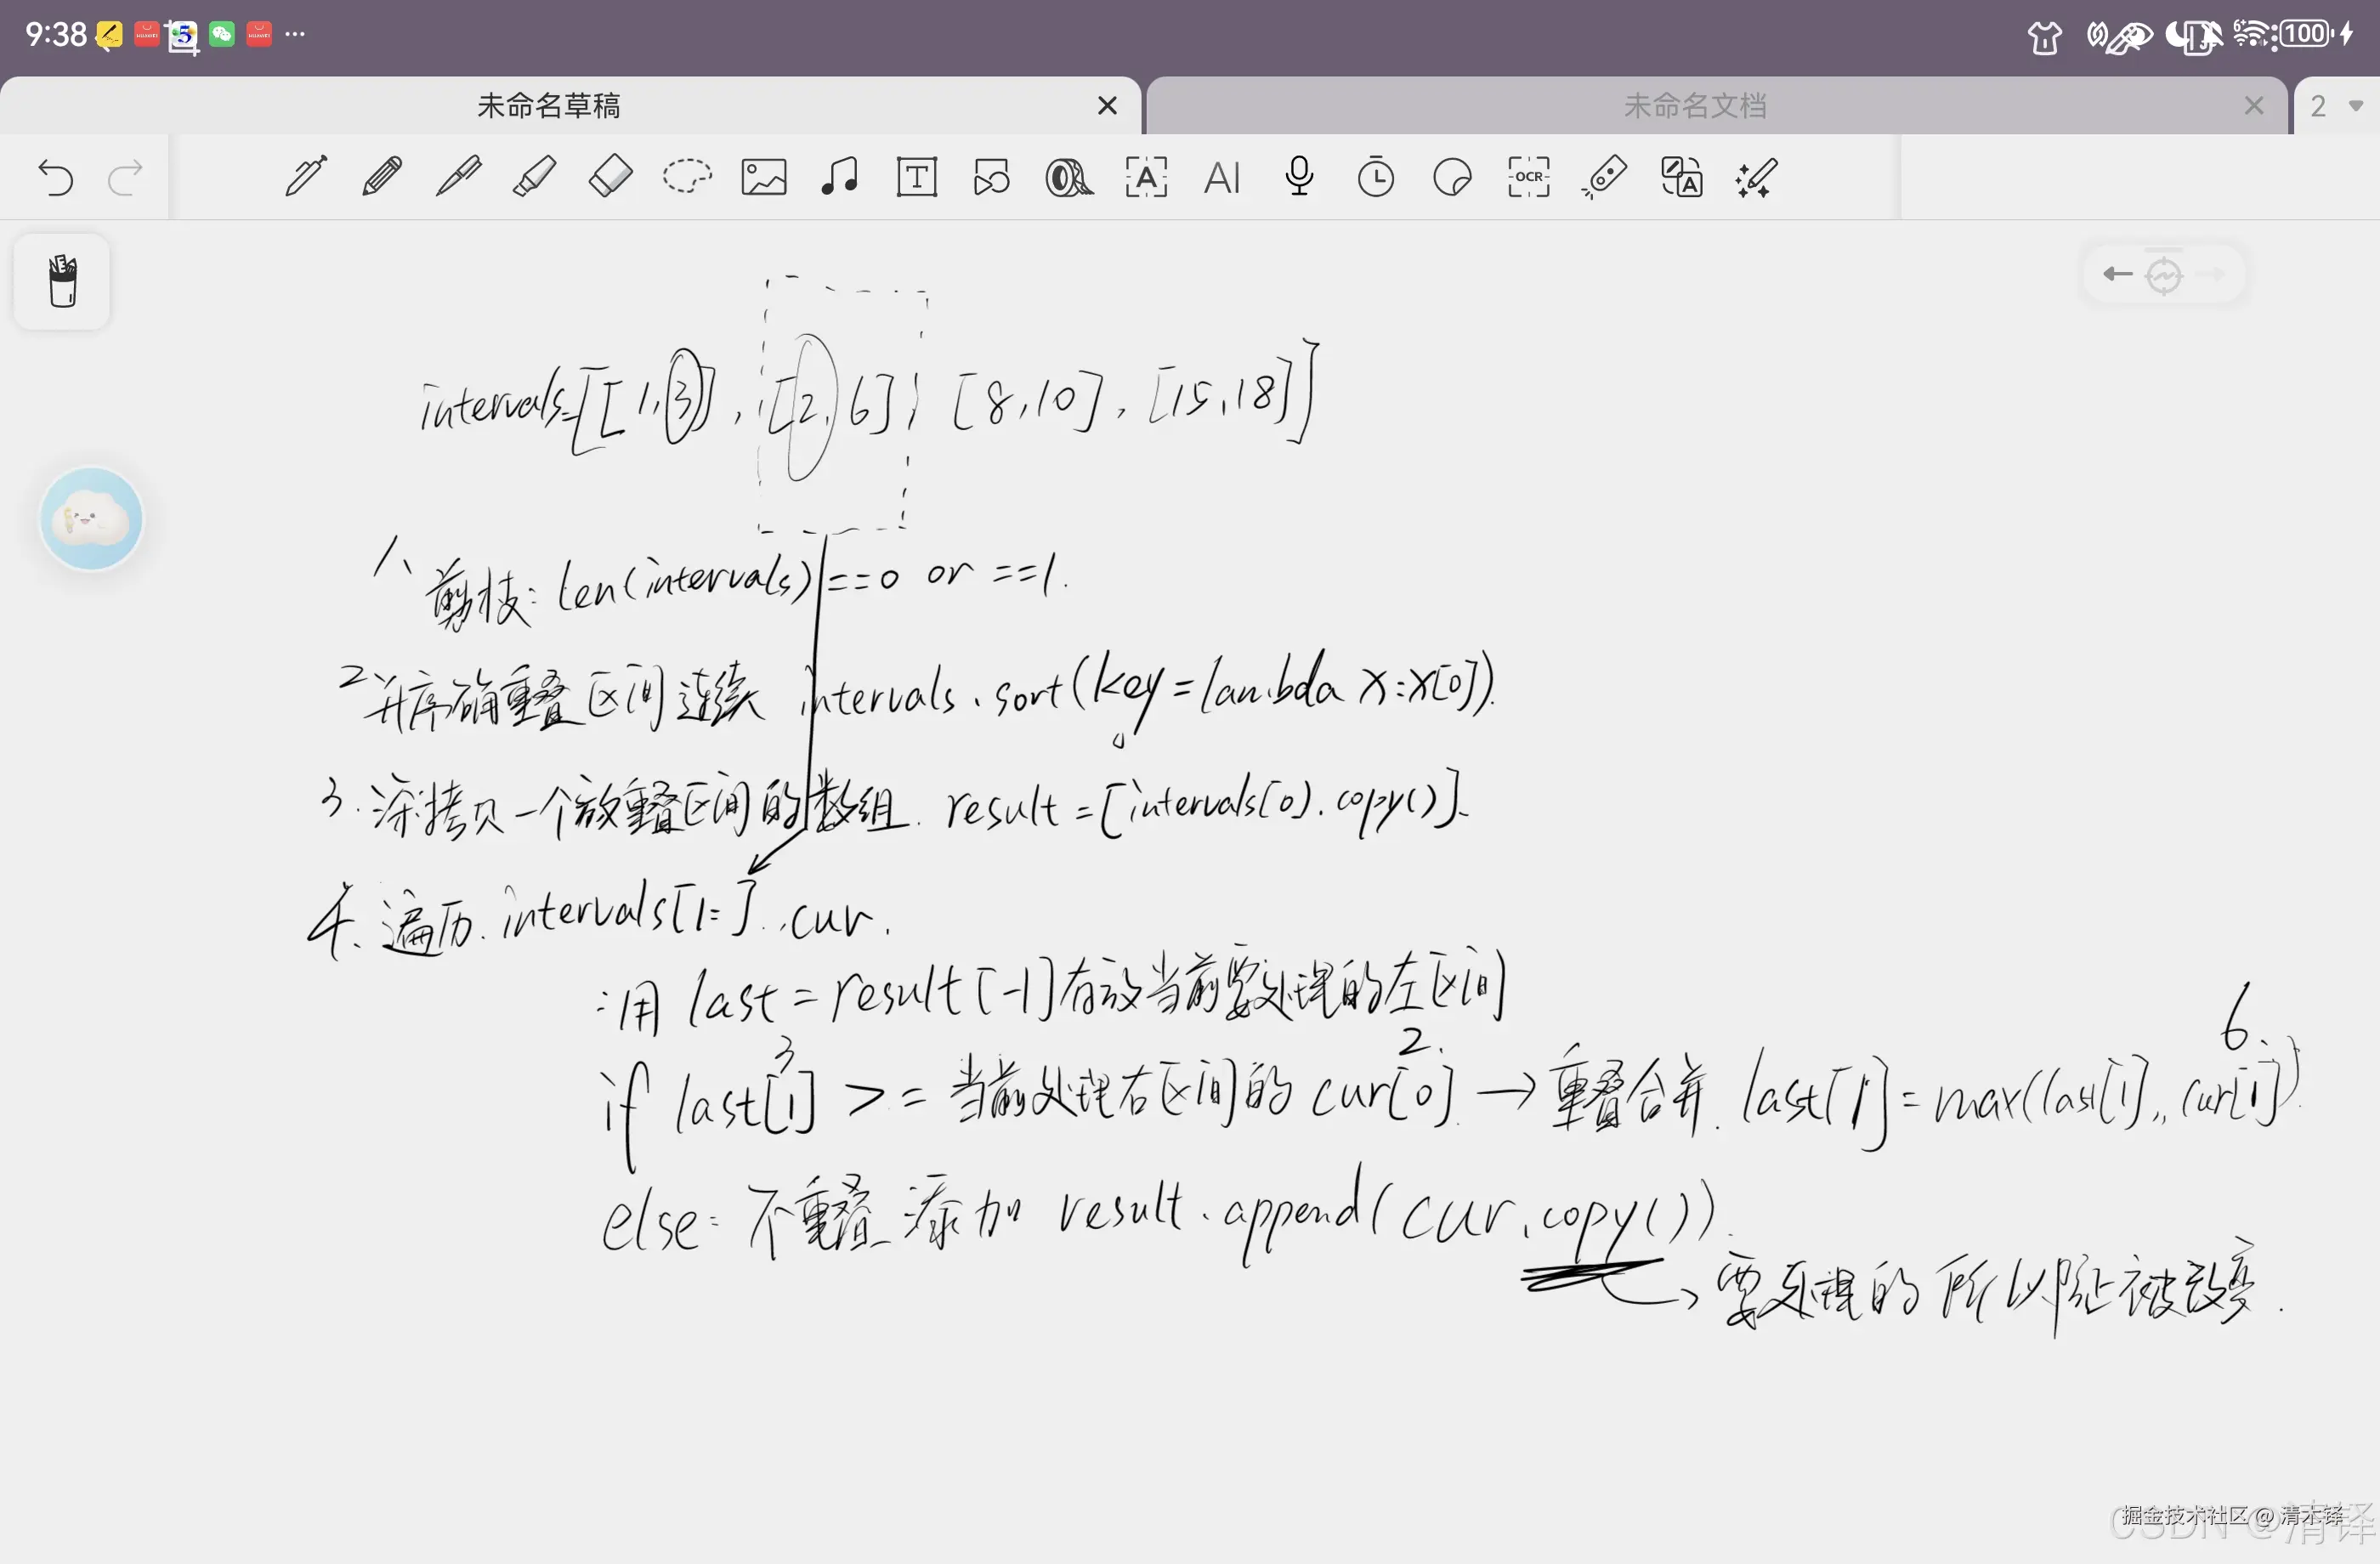 9:38
100
未命名草稿
未命名文档
2
T
A
AI
OCR
A
intervals=[[1,3],[2,6],[8,10],[15,18]]
1、剪枝:len(intervals)==0 or ==1.
2 升序确重叠区间连续 intervals.sort(key=lambda x:x[0]).
3.深拷贝一个放重叠区间的数组. result=[intervals[0].copy()].
4、遍历.intervals[1:].,cur.
:用 last=result[-1]存放当前要处理的左区间
3
2.
6.
if last[1] >= 当前处理右区间的 cur[0] → 重叠合并. last[1]=max(last[1],,cur[1]).
else: 不重叠 添加 result.append(cur.copy()).
要处理的 所以 被改变.
掘金技术社区 @ 清木铎
CSDN @清铎